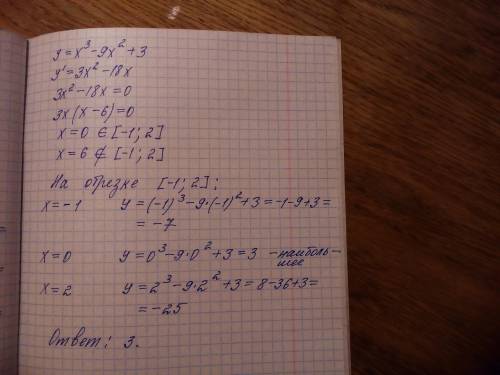 y = x³ - 9x² + 3
y' = 3x² - 18x
3x² - 18x = 0
3x(x - 6) = 0
x = 0 ∈ [-1; 2]
x = 6 ∉ [-1; 2]
На отрезке [-1; 2]:
x = -1 y = (-1)³ - 9·(-1)² + 3 = -1 - 9 + 3 =
= -7
x = 0 y = 0³ - 9·0² + 3 = 3 - наиболь-
шее
x = 2 y = 2³ - 9·2² + 3 = 8 - 36 + 3 =
= -25
Ответ: 3.